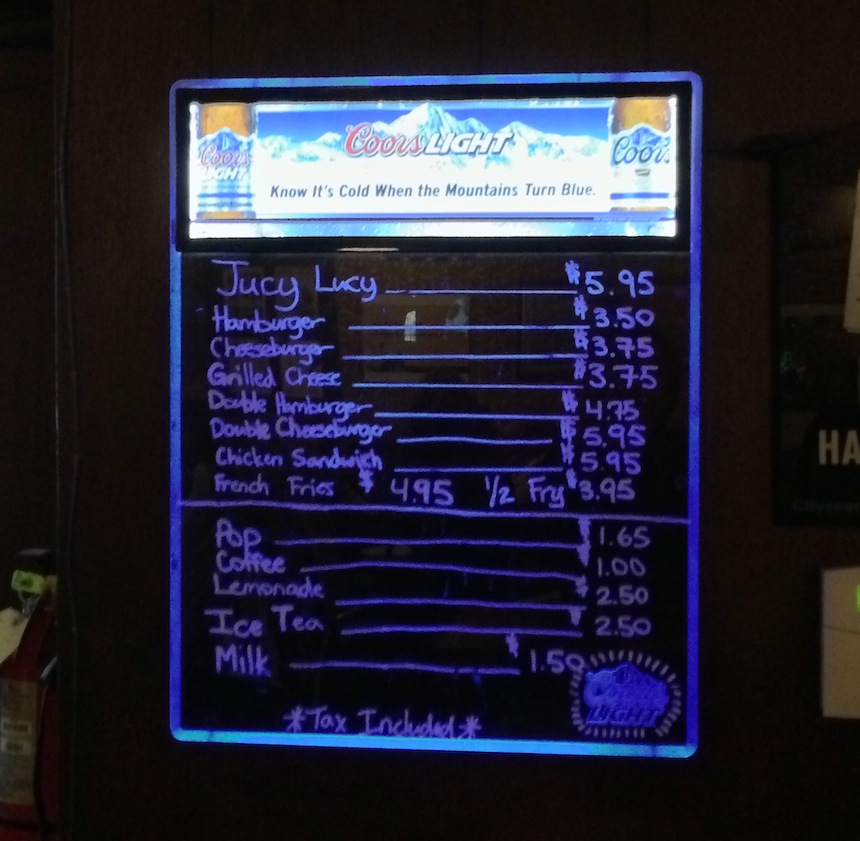 Coors LIGHT
Coors LIGHT
Coors
Know It's Cold When the Mountains Turn Blue.
Jucy Lucy $5.95
Hamburger $3.50
Cheeseburger $3.75
Grilled Cheese $3.75
Double Hamburger $4.75
Double Cheeseburger $5.95
Chicken Sandwich $5.95
French Fries $4.95 1/2 Fry $3.95
HA
Pop $1.65
Coffee $1.00
Lemonade $2.50
Ice Tea $2.50
Milk $1.50
LIGHT
*Tax Included*